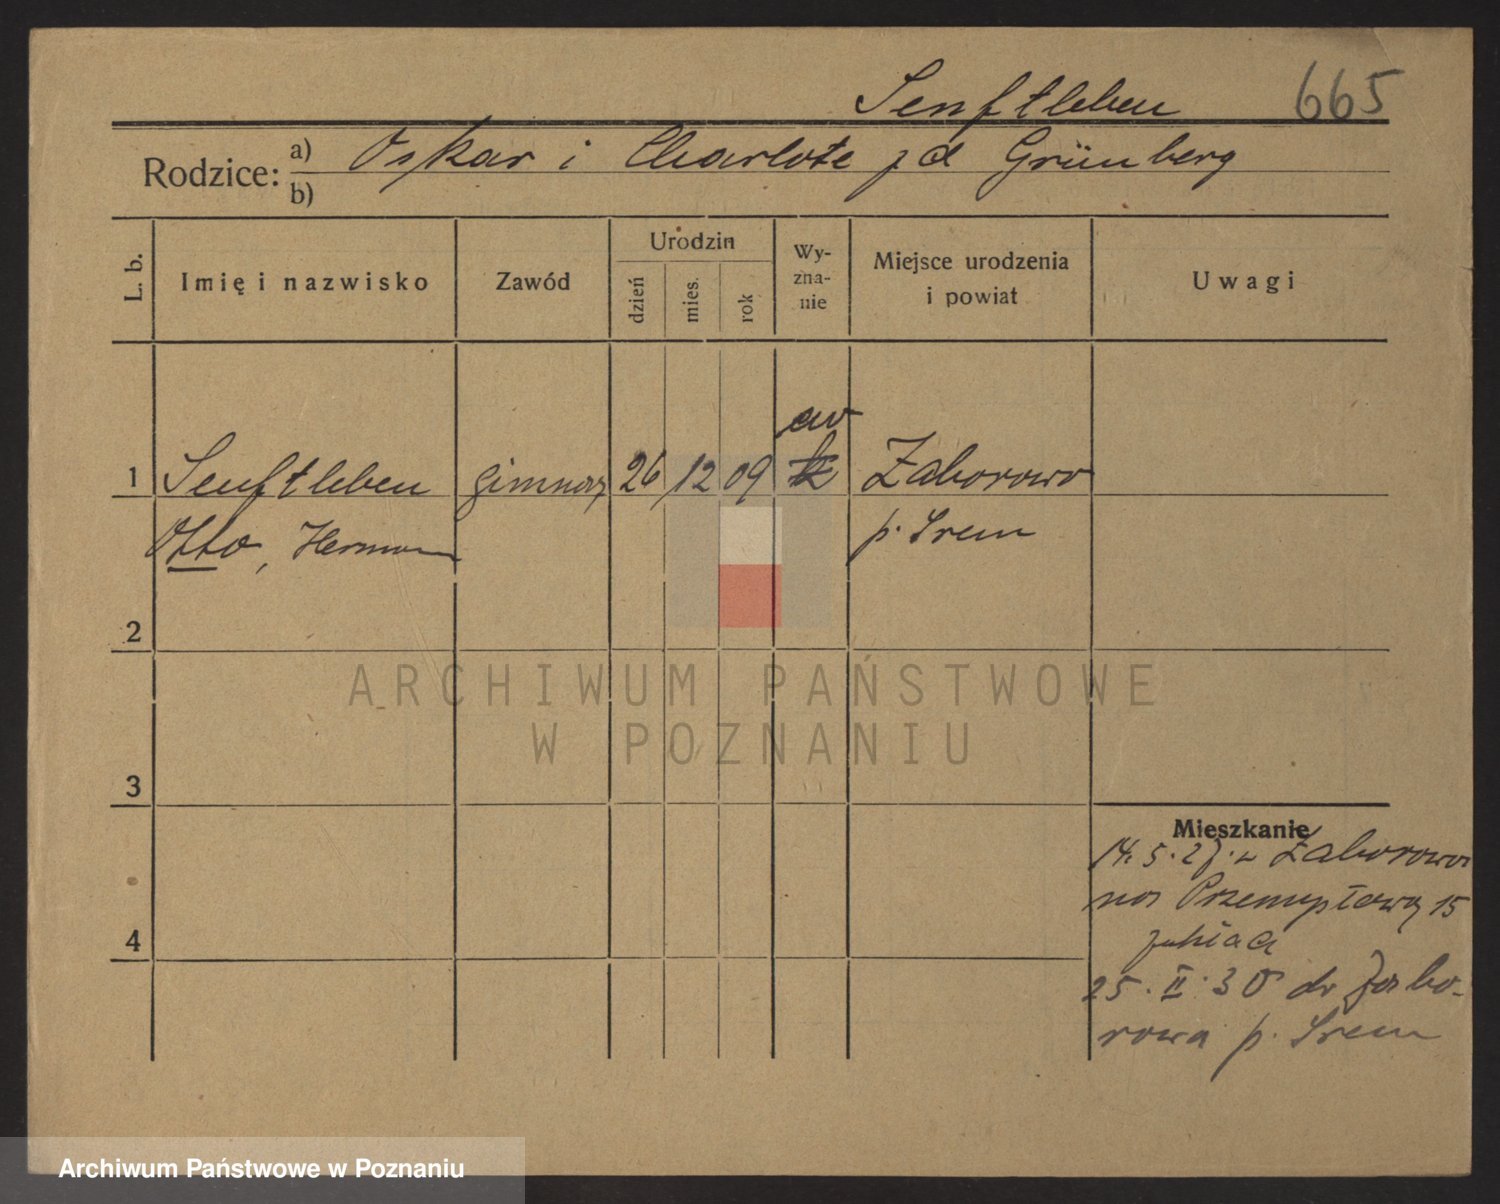 Senftleben 665
Rodzice: a) Oskar i Charlote zd Grünberg
b)
L. b. Imię i nazwisko Zawód Urodzin dzień mies. rok Wy-zna-nie Miejsce urodzenia i powiat Uwagi
ew
1 Senftleben gimnaz 26 12 09 k Zaborowo
Otto, Herman p. Srem
2
ARCHIWUM PAŃSTWOWE
W POZNANIU
3
Mieszkanie
14. 5. 27. z Zaborowa
na Przemysłową 15
25. II. 30 do Zabo-
4
rowa p. Srem
Archiwum Państwowe w Poznaniu